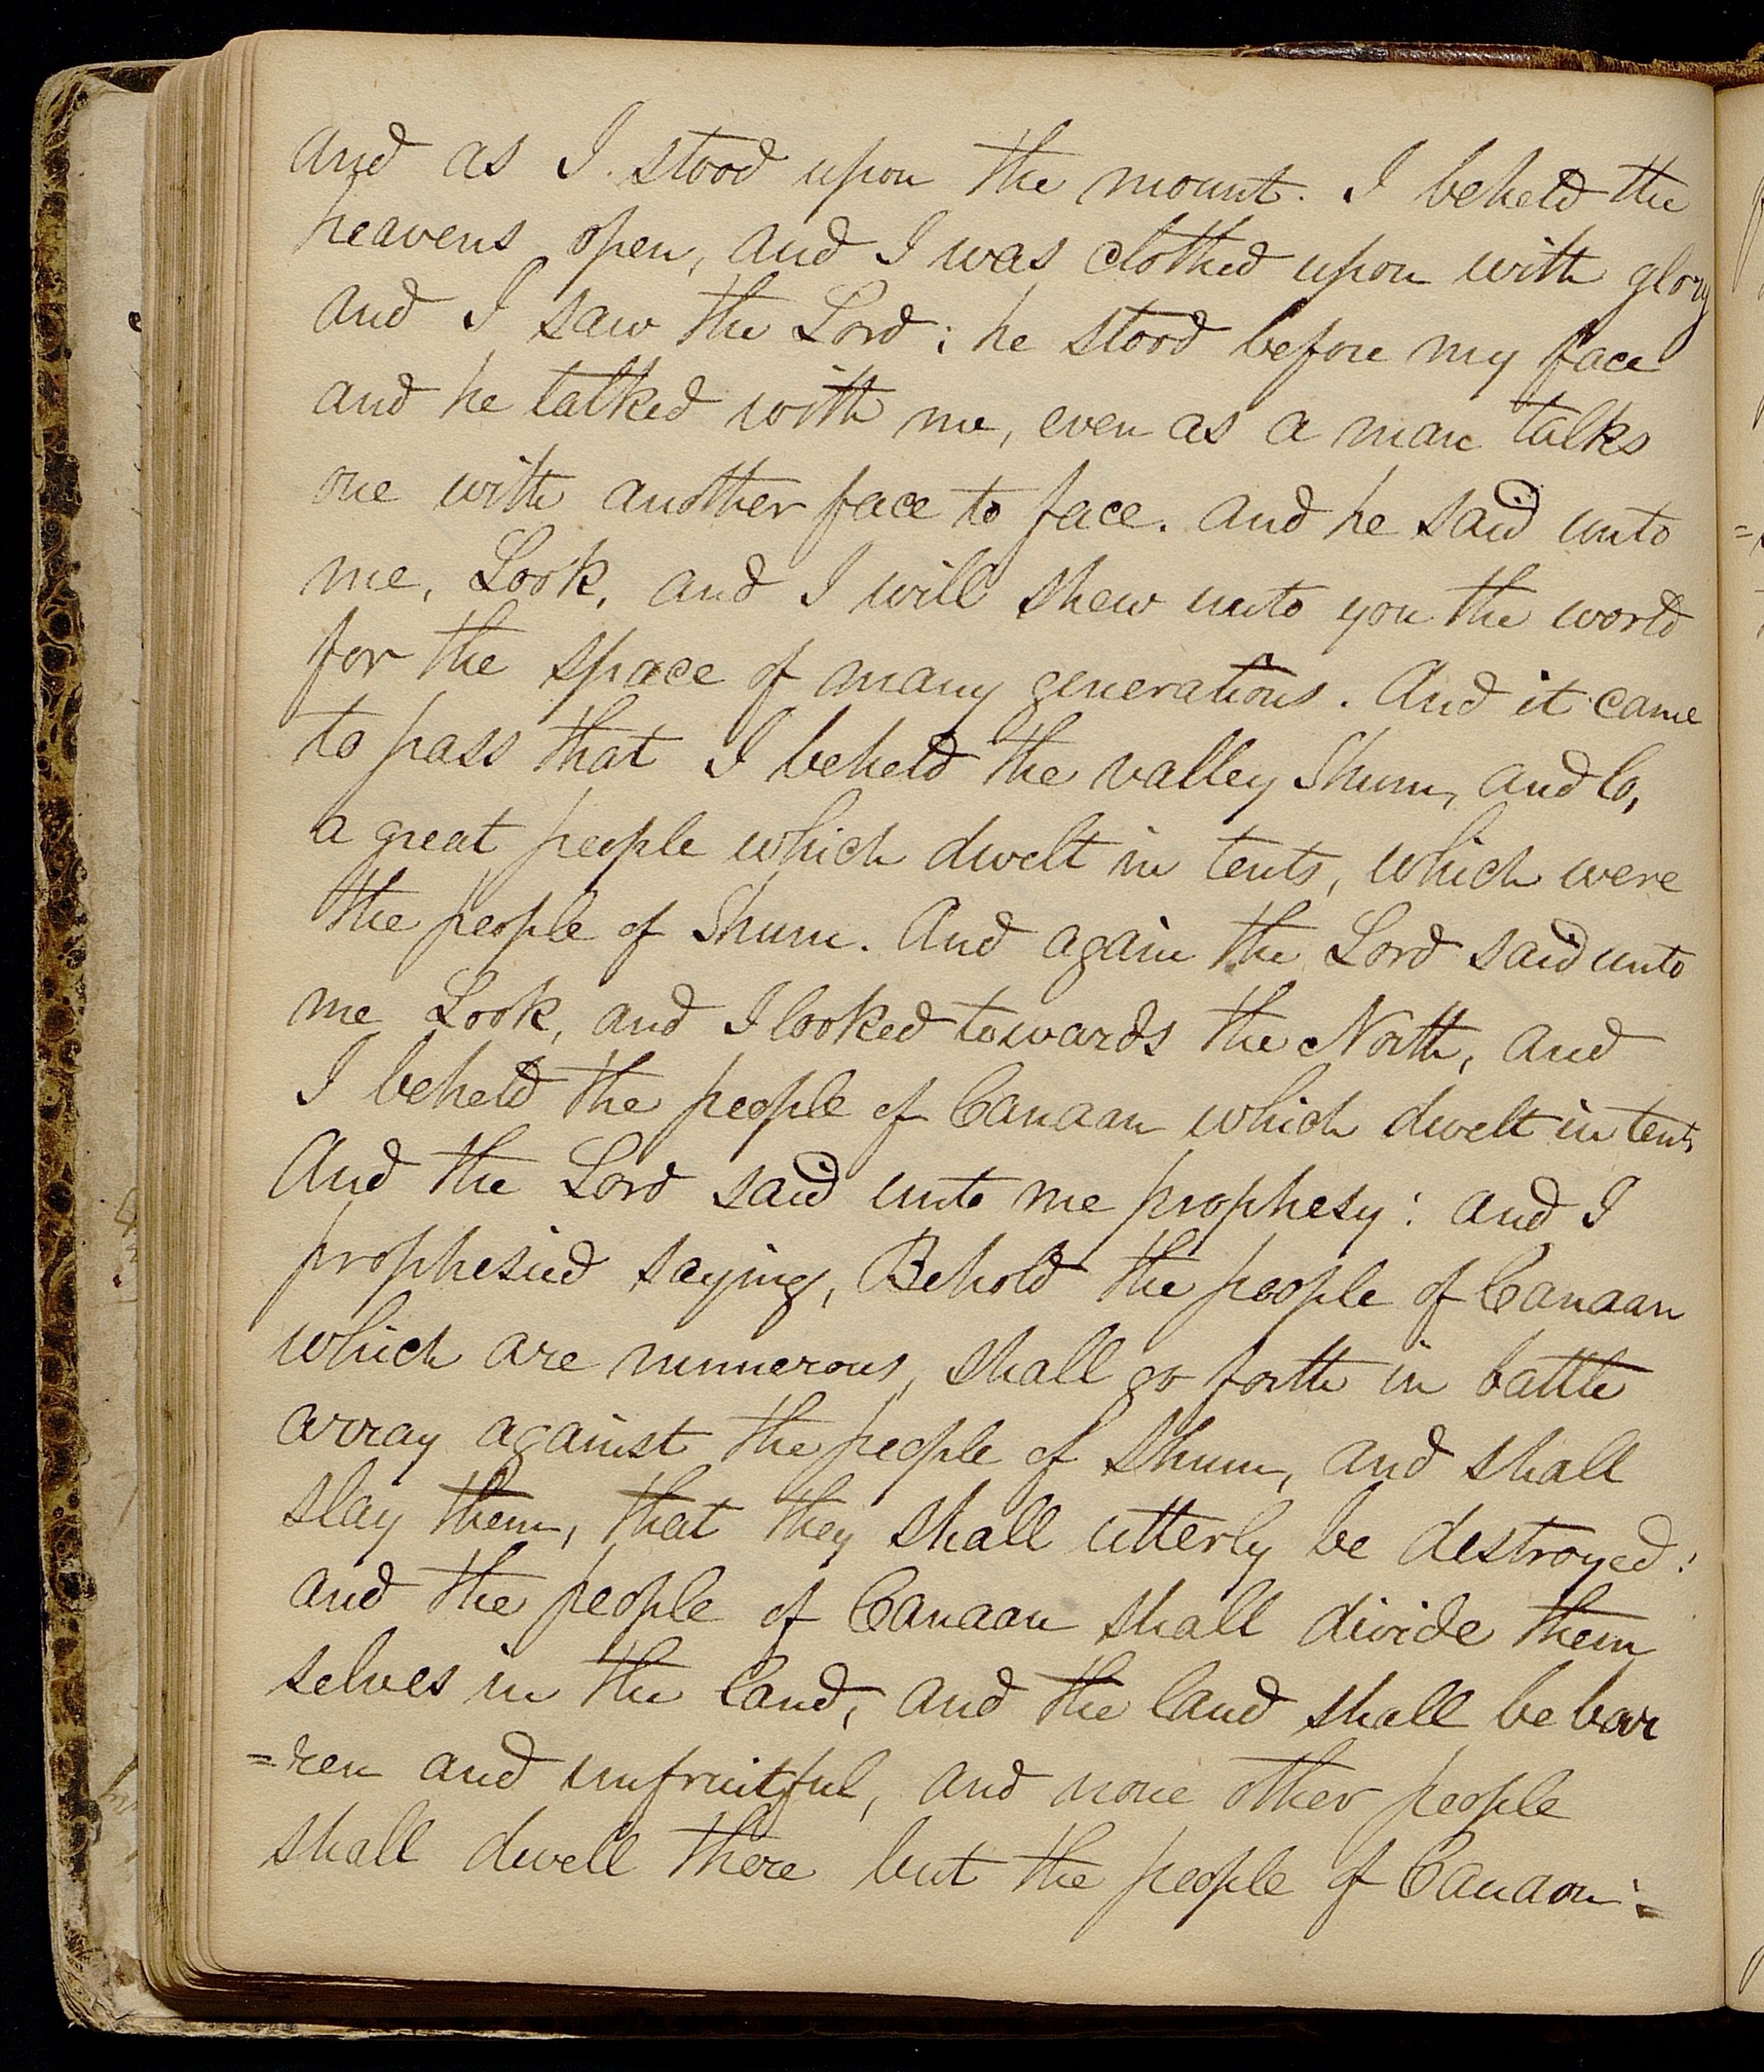 and as I stood upon the mount. I beheld the
heavens open, and I was clothed upon with glory
and I saw the Lord; he stood before my face
and he talked with me, even as a man talks
one with another face to face. and he said unto
me, Look, and I will shew unto you the world
for the space of many generations. And it came
to pass that I beheld the valley Shum, and lo,
a great people which dwelt in tents, which were
the people of Shum. And again the Lord said unto
me Look, and I looked towards the North, and
I beheld the people of Canaan which dwelt in tents
And the Lord said unto me prophesy: and I
prophesied saying, Behold the people of Canaan
which are numerous, shall go forth in battle
array against the people of Shum, and shall
slay them, that they shall utterly be destroyed:
and the people of Canaan shall divide them
selves in the land, and the land shall be bar
=ren and unfruitful, and none other people
shall dwell there but the people of Canaan:=